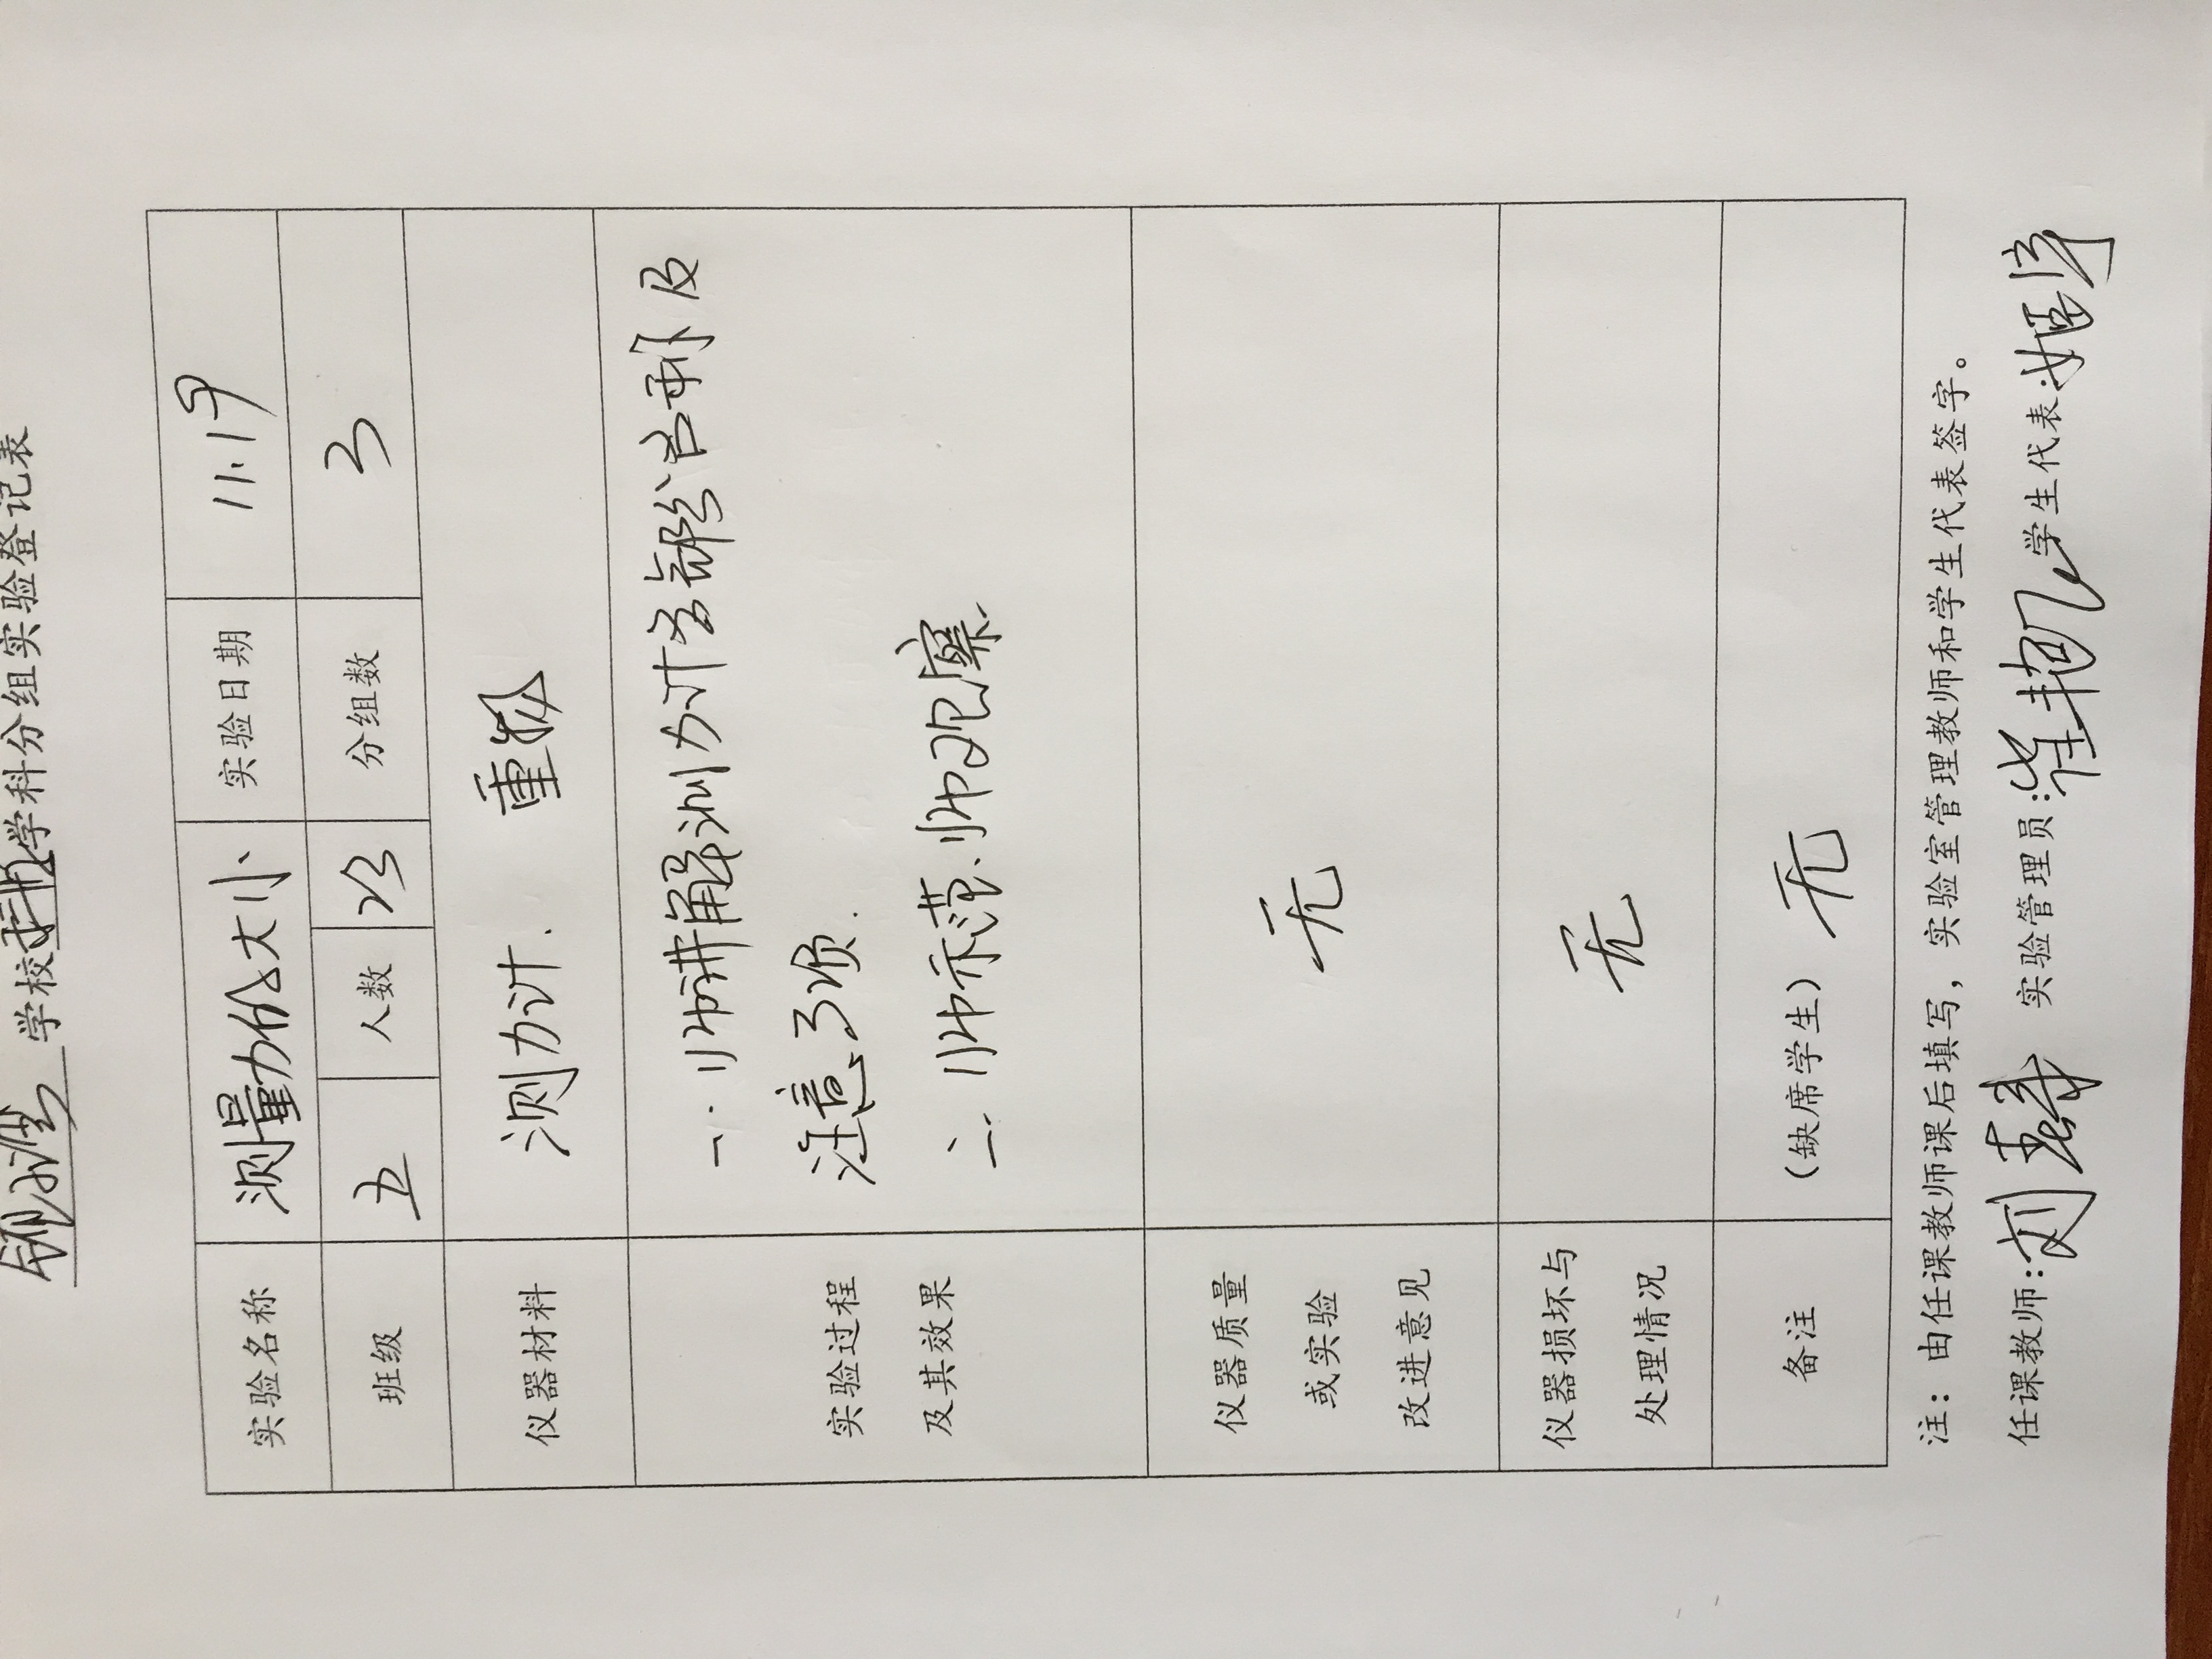 学校 科学 学科分组实验登记表
实验名称 测量力的大小 实验日期 11.19
班级 五 人数 23 分组数 3
仪器材料 测力计. 重物
实验过程 及其效果 一. 师讲解测力计各部分名称及
注意事项.
二. 师示范.师观察.
仪器质量 或实验 改进意见 无
仪器损坏与 处理情况 无
备注 (缺席学生) 无
注：由任课教师课后填写，实验室管理教师和学生代表签字。
任课教师: 刘 实验管理员: 崔艳 学生代表: